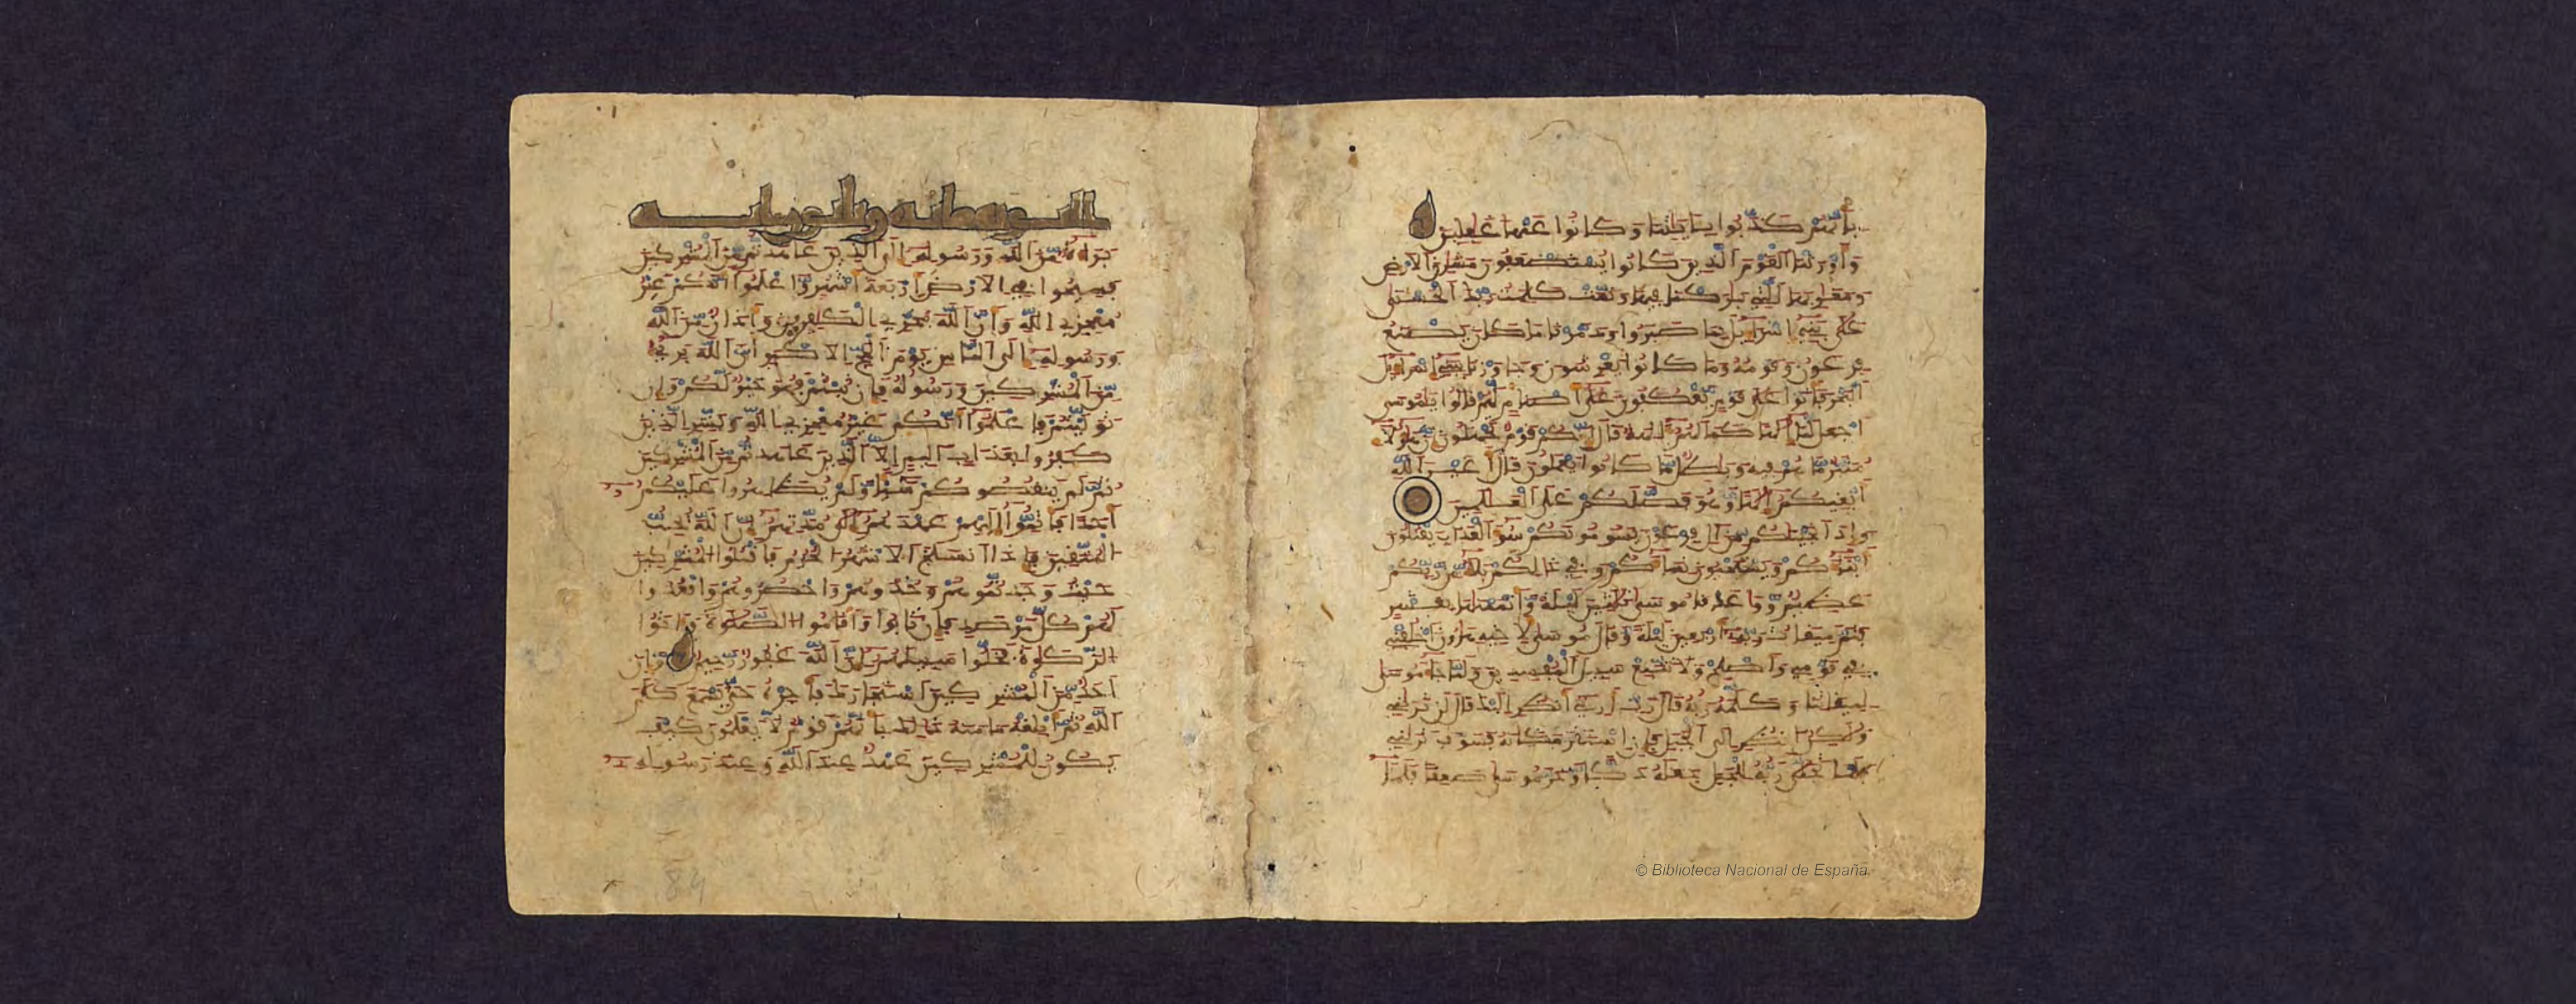 بأنهم كذبوا بـايتنا وكانوا عنها غفلين
وأورثنا القوم الذين كانوا يستضعفون مشرق الارض
ومغربها التي بركنا فيها وتمت كلمت ربك الحسنى
على بني إسراءيل بما صبروا ودمرنا ما كان يصنع
فرعون وقومه وما كانوا يعرشون وجوزنا ببني إسراءيل
البحر فأتوا على قوم يعكفون على أصنام لهم قالوا يموسى
اجعل لنا إلها كما لهم ءالهة قال إنكم قوم تجهلون إن هؤلاء
متبر ما هم فيه وبطل ما كانوا يعملون قال أغير الله
أبغيكم إلها وهو فضلكم على العلمين
وإذ أنجينكم من ءال فرعون يسومونكم سوء العذاب يقتلون
أبناءكم ويستحيون نساءكم وفي ذالكم بلاء من ربكم
عظيم ووعدنا موسى ثلثين ليلة وأتممنها بعشر
فتم ميقت ربه أربعين ليلة وقال موسى لأخيه هرون اخلفني
في قومي وأصلح ولا تتبع سبيل المفسدين ولما جاء موسى
لميقتنا وكلمه ربه قال رب أرني أنظر إليك قال لن تريني
ولكن انظر إلى الجبل فإن استقر مكانه فسوف تريني
فلما تجلى ربه للجبل جعله دكا وخر موسى صعقا فلما
التوبة مائة وثلثون ءاية
براءة من الله ورسوله إلى الذين عهدتم من المشركين
فسيحوا في الارض أربعة أشهر واعلموا أنكم غير
معجزي الله وأن الله مخزي الكفرين وأذان من الله
ورسوله إلى الناس يوم الحج الاكبر أن الله بريء
من المشركين ورسوله فإن تبتم فهو خير لكم وإن
توليتم فاعلموا أنكم غير معجزي الله وبشر الذين
كفروا بعذاب اليم إلا الذين عهدتم من المشركين
ثم لم ينقصوكم شيئا ولم يظهروا عليكم
أحدا فأتموا إليهم عهدهم إلى مدتهم إن الله يحب
المتقين فإذا انسلخ الاشهر الحرم فاقتلوا المشركين
حيث وجدتموهم وخذوهم واحصروهم واقعدوا
لهم كل مرصد فإن تابوا وأقاموا الصلوة وءاتوا
الزكوة فخلوا سبيلهم إن الله غفور رحيم وإن
أحد من المشركين استجارك فأجره حتى يسمع كلم
الله ثم أبلغه مامنه ذالك بأنهم قوم لا يعلمون كيف
يكون للمشركين عهد عند الله وعند رسوله
84
© Biblioteca Nacional de España